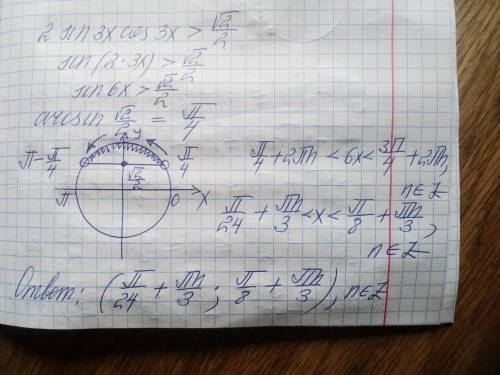 2 sin 3x cos 3x > √2/2
sin (2·3x) > √2/2
sin 6x > √2/2
arcsin √2/2 = π/4
y
π - π/4
π/4
√2/2
π
0
x
π/4 + 2πn < 6x < 3π/4 + 2πn,
n∈Z
π/24 + πn/3 < x < π/8 + πn/3,
n∈Z
Ответ: (π/24 + πn/3; π/8 + πn/3), n∈Z